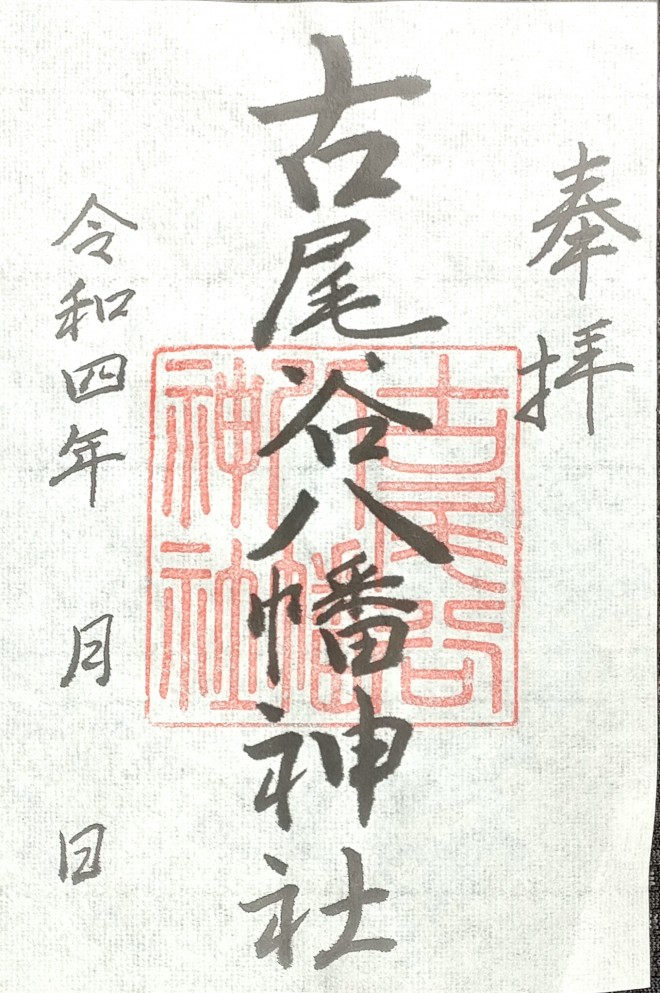 奉拝
古尾谷八幡神社
古尾谷八幡神社
令和四年 月 日